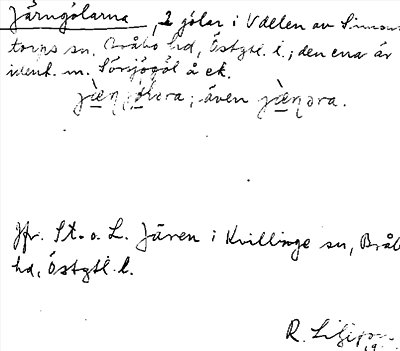 Järngölarna, 2 gölar i V delen av Simons
torps sn. Bråbo hd, Östgtl. l.; den ena är
ident. m. Sörsjögöl å ek.
; även
Jfr. St. o. L. Jären i Kvillinge sn, Bråb
hd, Östgtl. l.
R.